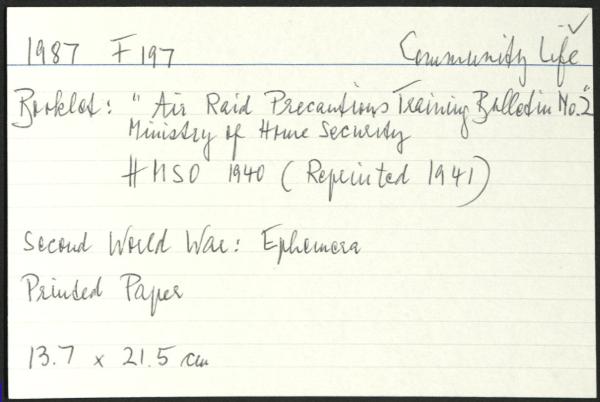 1987 F197 Community Life ✓
Booklet: "Air Raid Precautions Training Bulletin No.2"
Ministry of Home Security
HMSO 1940 (Reprinted 1941)
Second World War: Ephemera
Printed Paper
13.7 x 21.5 cm